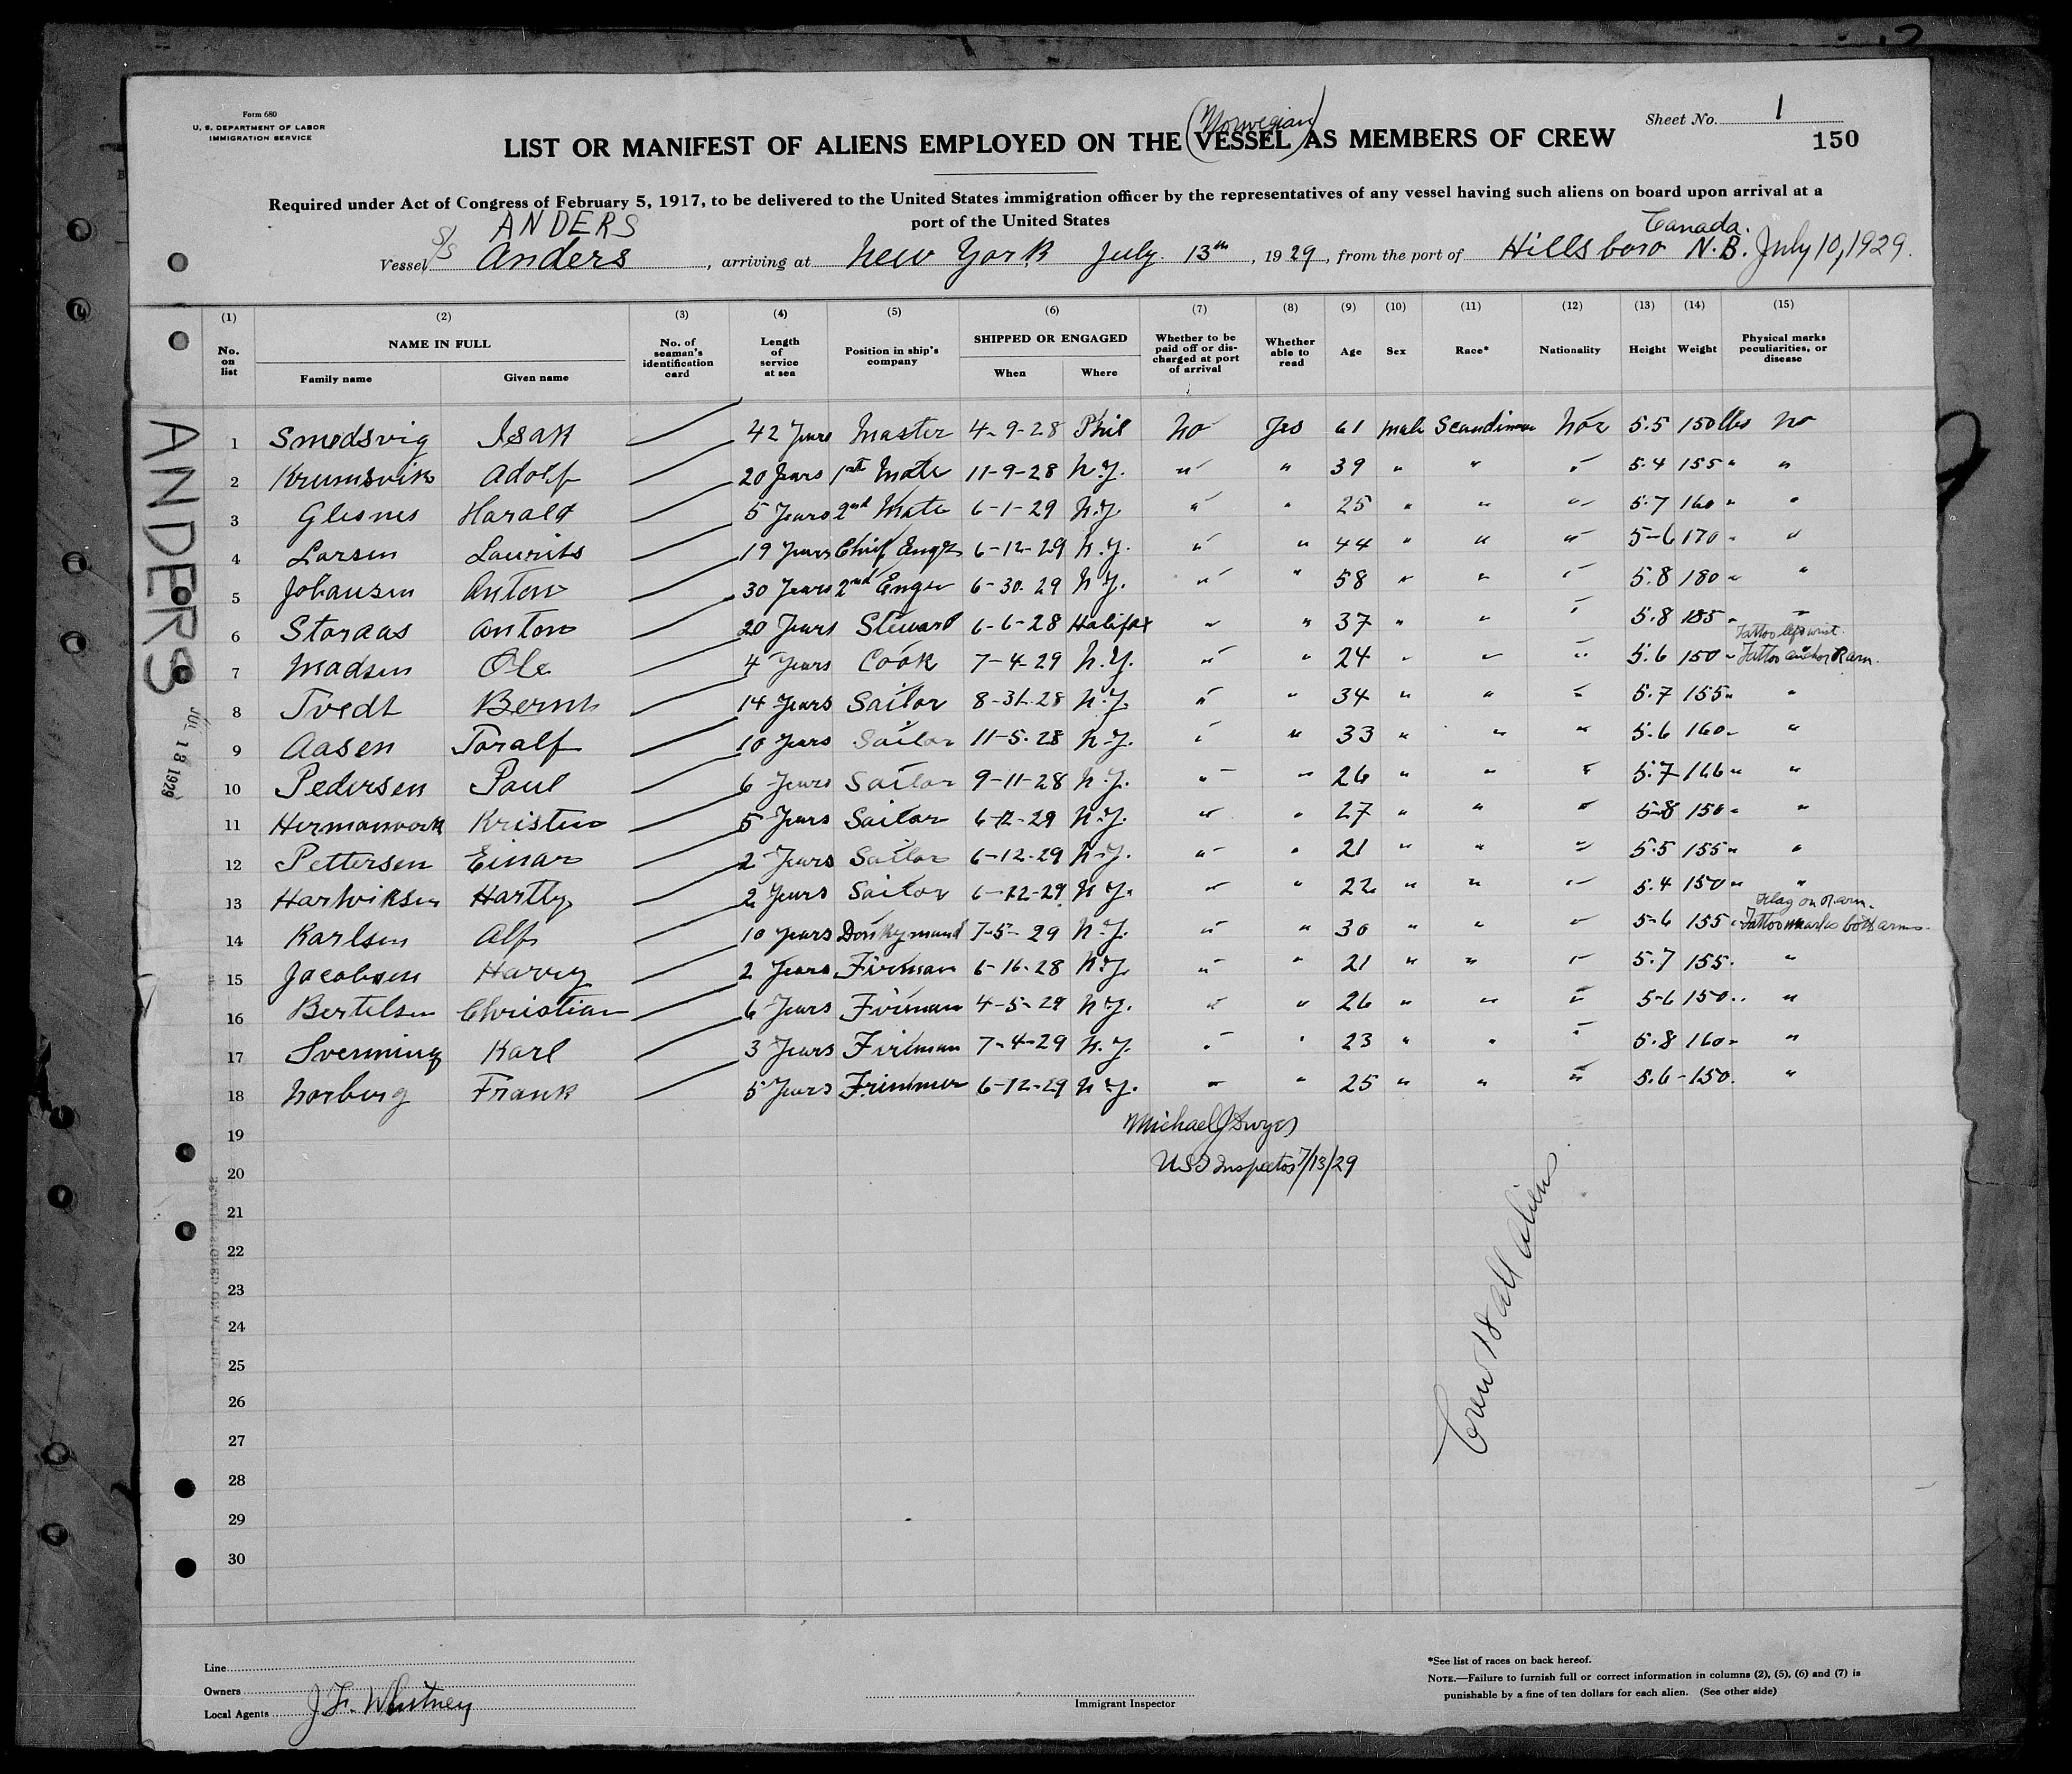 Form 680
U. S. DEPARTMENT OF LABOR
IMMIGRATION SERVICE
Sheet No. 1
150
(Norwegian)
LIST OR MANIFEST OF ALIENS EMPLOYED ON THE VESSEL AS MEMBERS OF CREW
Required under Act of Congress of February 5, 1917, to be delivered to the United States immigration officer by the representatives of any vessel having such aliens on board upon arrival at a
port of the United States
ANDERS
Canada.
Vessel S/S Anders, arriving at New York July 13th, 1929, from the port of Hillsboro N.B. July 10, 1929.
(1) (2) (3) (4) (5) (6) (7) (8) (9) (10) (11) (12) (13) (14) (15)
No. on list NAME IN FULL Family name Given name No. of seaman's identification card Length of service at sea Position in ship's company SHIPPED OR ENGAGED When Where Whether to be paid off or discharged at port of arrival Whether able to read Age Sex Race* Nationality Height Weight Physical marks peculiarities, or disease
1 Smedsvig Isak 42 Years Master 4-9-28 Phil No Yes 61 Male Nor 5.5 150 lbs no
2 Krumsvik Adolf 20 Years 1st Mate 11-9-28 N.Y. " " 39 " " " 5.4 155 " "
3 Glesnes Harald 5 Years 2nd Mate 6-1-29 N.Y. " " 25 " " " 5.7 160 " "
4 Larsen Laurits 19 Years Chief Engr 6-12-29 N.Y. " " 44 " " " 5-6 170 " "
5 Johansen Anton 30 Years 2nd Enger 6-30-29 N.Y. " " 58 " " " 5.8 180 " "
6 Storaas Anton 20 Years Steward 6-6-28 Halifax " " 37 " " " 5.8 185 " "
Tattoo left wrist.
7 Madsen Ole 4 Years Cook 7-4-29 N.Y. " " 24 " " " 5.6 150 " Tattoo anchor R arm.
8 Tvedt Bernt 14 Years Sailor 8-31-28 N.Y. " " 34 " " " 5.7 155 " "
9 Aasen Toralf 10 Years Sailor 11-5-28 N.Y. " " 33 " " " 5.6 160 " "
10 Pedersen Paul 6 Years Sailor 9-11-28 N.Y. " " 26 " " " 5.7 166 " "
11 Kristen 5 Years Sailor 6-12-29 N.Y. " " 27 " " " 5-8 150 " "
12 Pettersen Einar 2 Years Sailor 6-12-29 N.Y. " " 21 " " " 5.5 155 " "
13 Hartviksen Hartly 2 Years Sailor 6-22-29 N.Y. " " 22 " " " 5.4 150 " "
Flag on R arm.
14 Karlsen Alf 10 Years 7-5-29 N.Y. " " 30 " " " 5-6 155 " Tattoo marks both arms.
15 Jacobsen Harry 2 Years Fireman 6-16-28 N.Y. " " 21 " " " 5.7 155 " "
16 Bertelsen Christian 6 Years Fireman 4-5-29 N.Y. " " 26 " " " 5-6 150 " "
17 Svenning Karl 3 Years Fireman 7-4-29 N.Y. " " 23 " " " 5.8 160 " "
18 Norberg Frank 5 Years 6-12-29 N.Y. " " 25 " " " 5.6 150 "
19
20
21
22
23
24
25
26
27
28
29
30
Michael J Dwyer
USI Inspector 7/13/29
Crew 18 all aliens
ANDERS
JUL 18 1929
Line
Owners
Local Agents J. F. Whitney
Immigrant Inspector
*See list of races on back hereof.
NOTE.—Failure to furnish full or correct information in columns (2), (5), (6) and (7) is
punishable by a fine of ten dollars for each alien. (See other side)